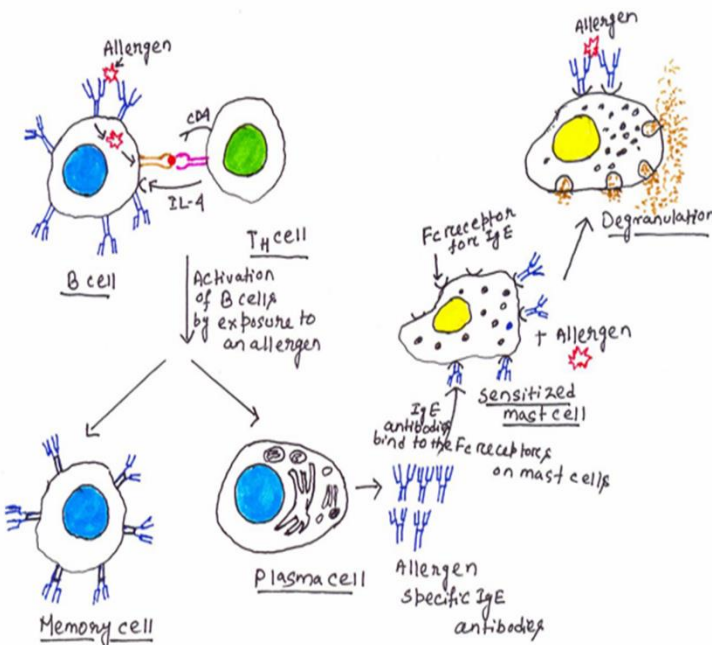 Allergen
CD4
IL-4
B cell
TH cell
Activation
of B cells
by exposure to
an allergen
Memory cell
Plasma cell
Allergen
specific IgE
antibodies
IgE
antibodies
bind to the Fc receptors
on mast cells
Fc receptor
for IgE
+ Allergen
Sensitized
mast cell
Allergen
Degranulation